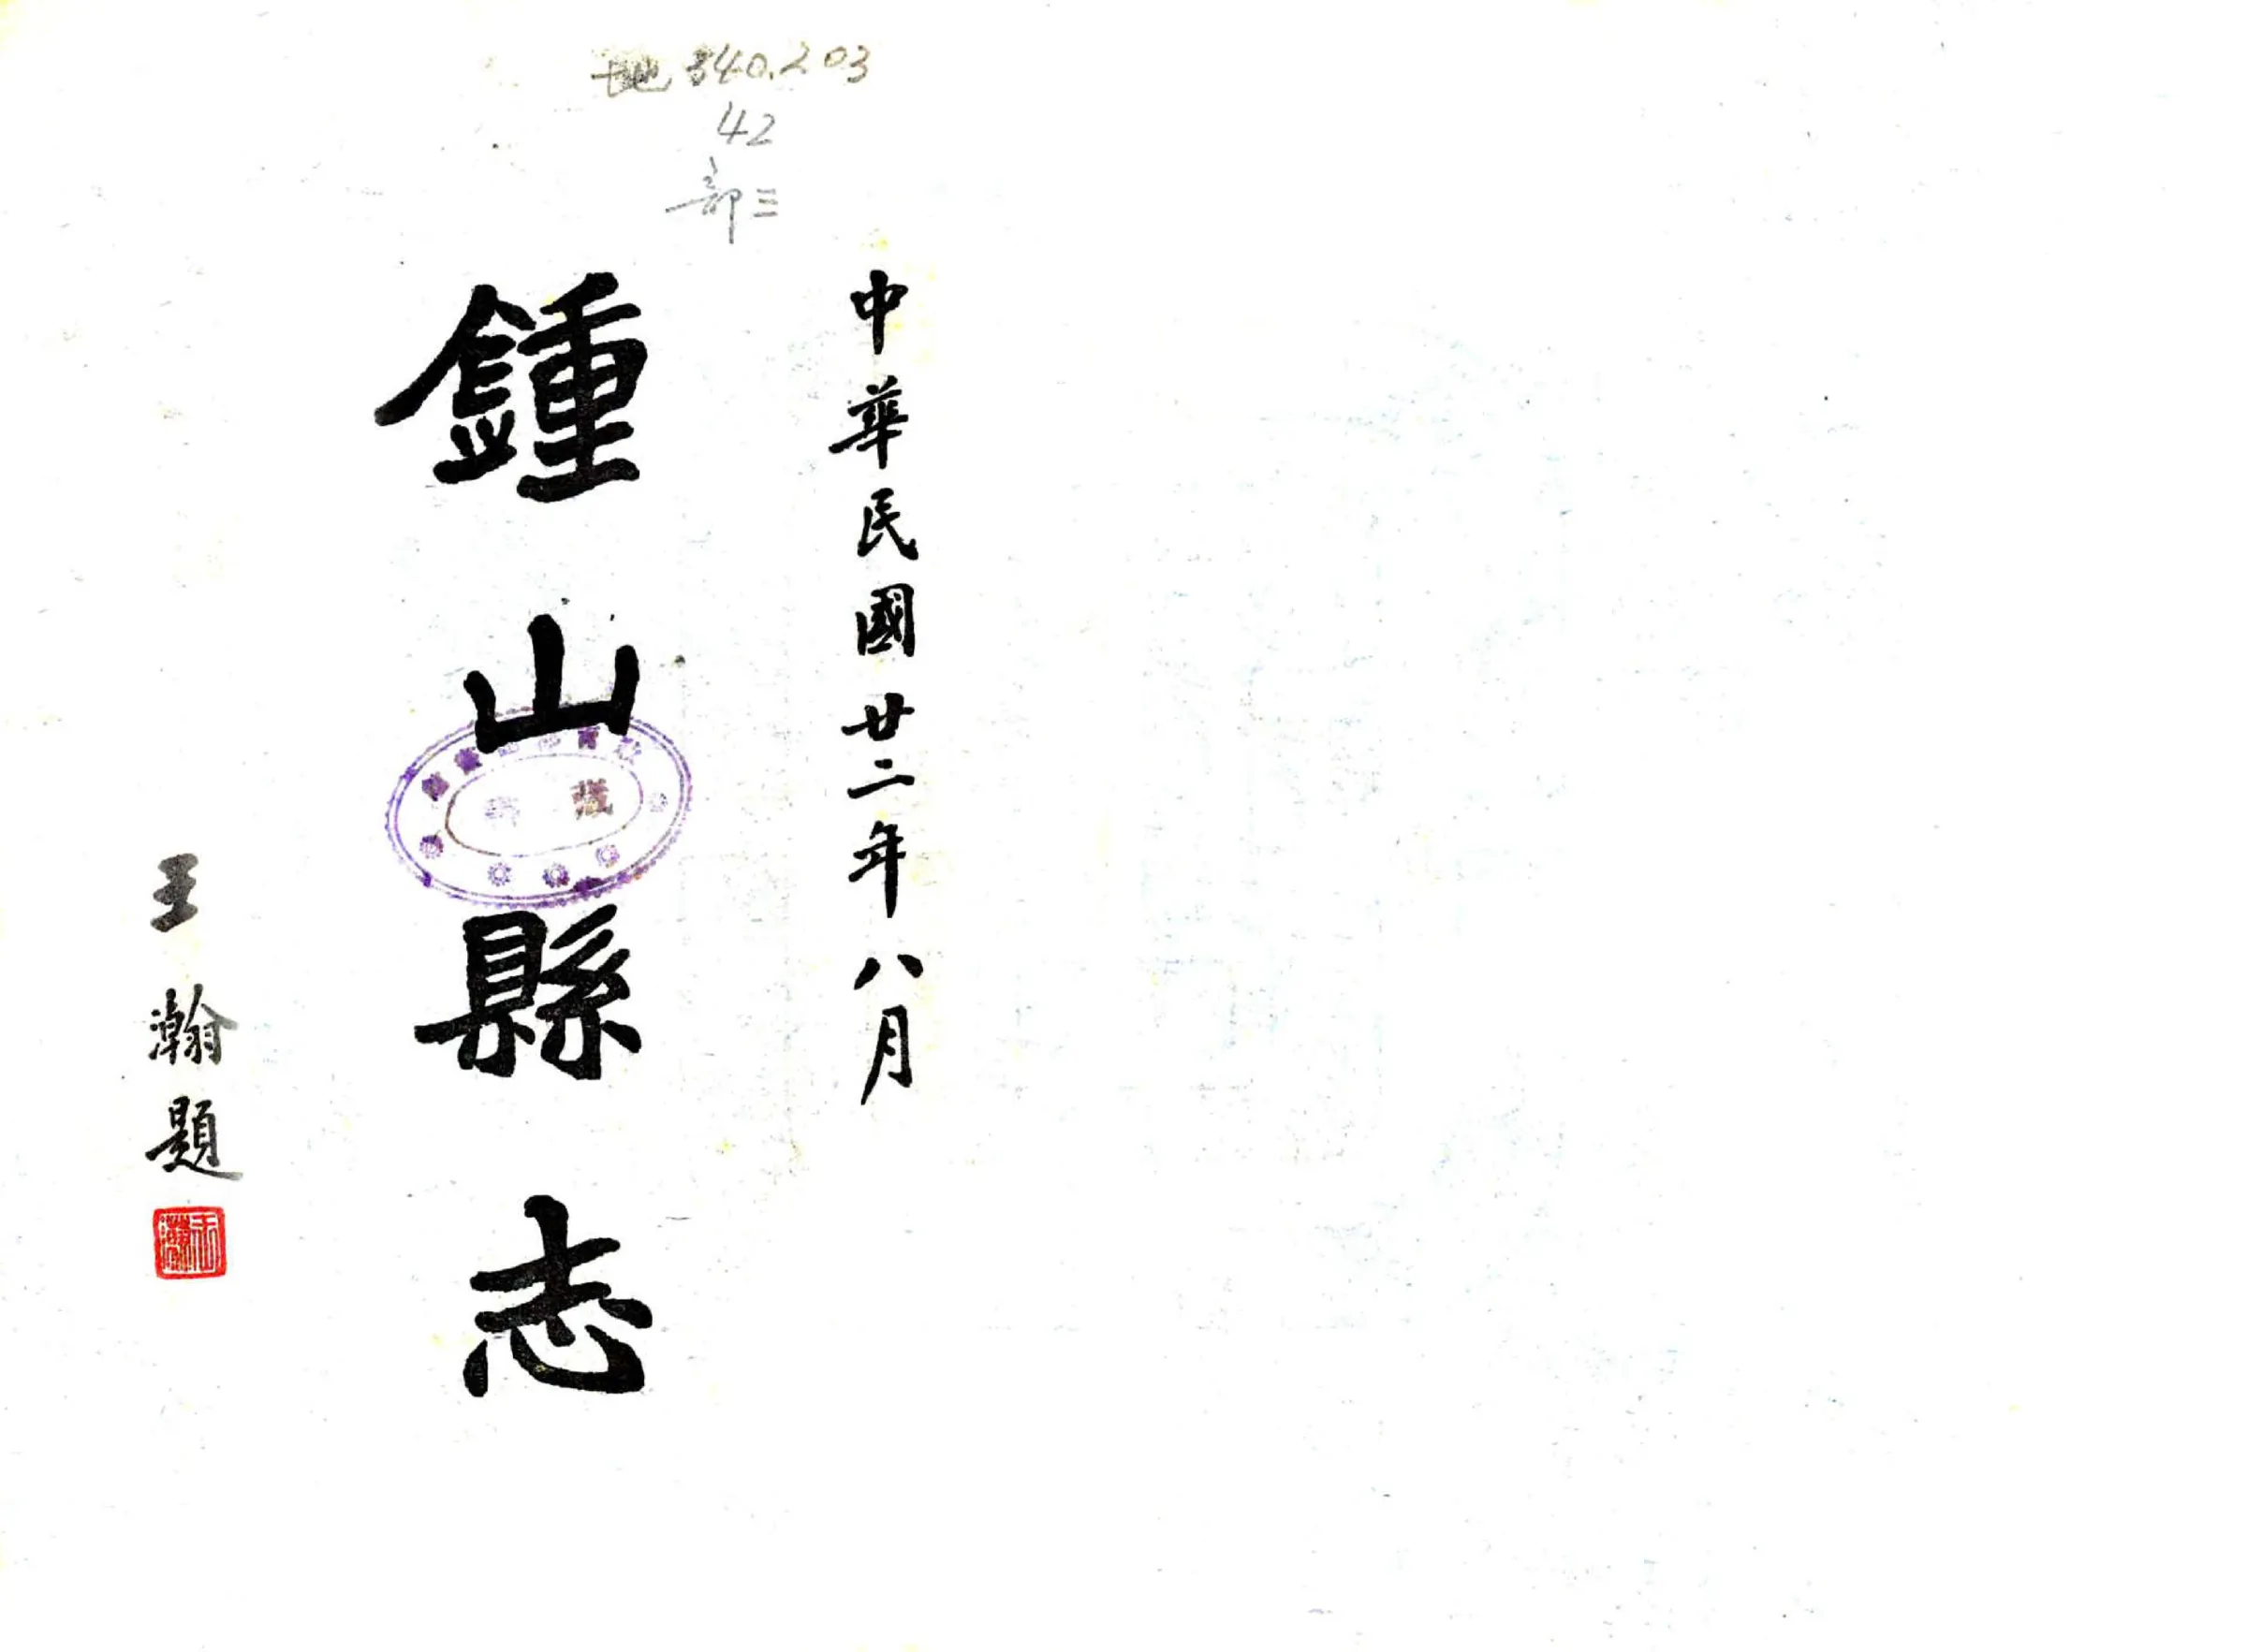 地 340.203
42
部三
中華民國廿二年八月
鍾山縣志
藏
王瀚題
王瀚